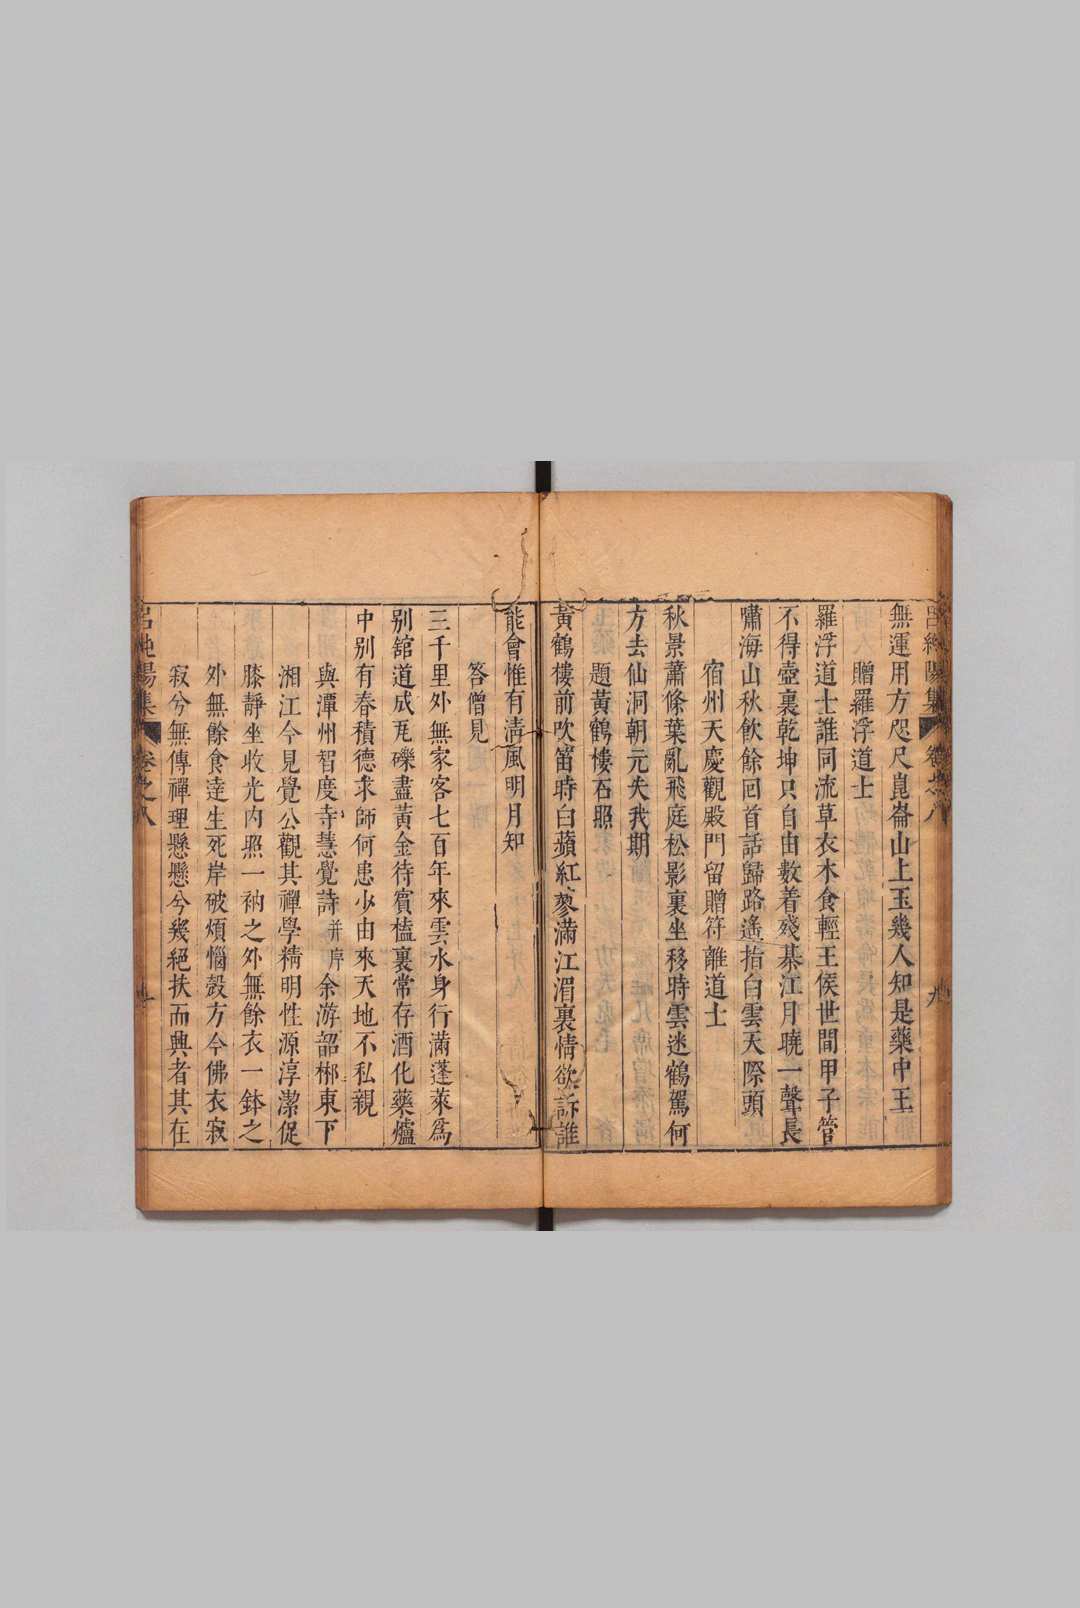 無運用方咫尺崑崙山上玉幾人知是藥中王
贈羅浮道士
羅浮道士誰同流草衣木食輕王侯世間甲子管
不得壺裏乾坤只自由數着殘棊江月曉一聲長
嘯海山秋飲餘回首話歸路遙指白雲天際頭
宿州天慶觀殿門留贈符離道士
秋景蕭條葉亂飛庭松影裏坐移時雲迷鶴駕何
方去仙洞朝元失我期
題黃鶴樓石照
黃鶴樓前吹笛時白蘋紅蓼滿江湄裏情欲訴誰
能會惟有淸風明月知
答僧見
三千里外無家客七百年來雲水身行滿蓬萊爲
别舘道成瓦礫盡黃金待賓榼裏常存酒化藥爐
中別有春積德求師何患少由來天地不私親
與潭州智度寺慧覺詩
余游韶郴東下
湘江今見覺公觀其禪學精明性源淳潔促
膝靜坐收光内照一衲之外無餘衣一鉢之
外無餘食達生死岸破煩惱殼方今佛衣寂
寂兮無傳禪理懸懸兮幾絕扶而興者其在
呂純陽集
卷之八